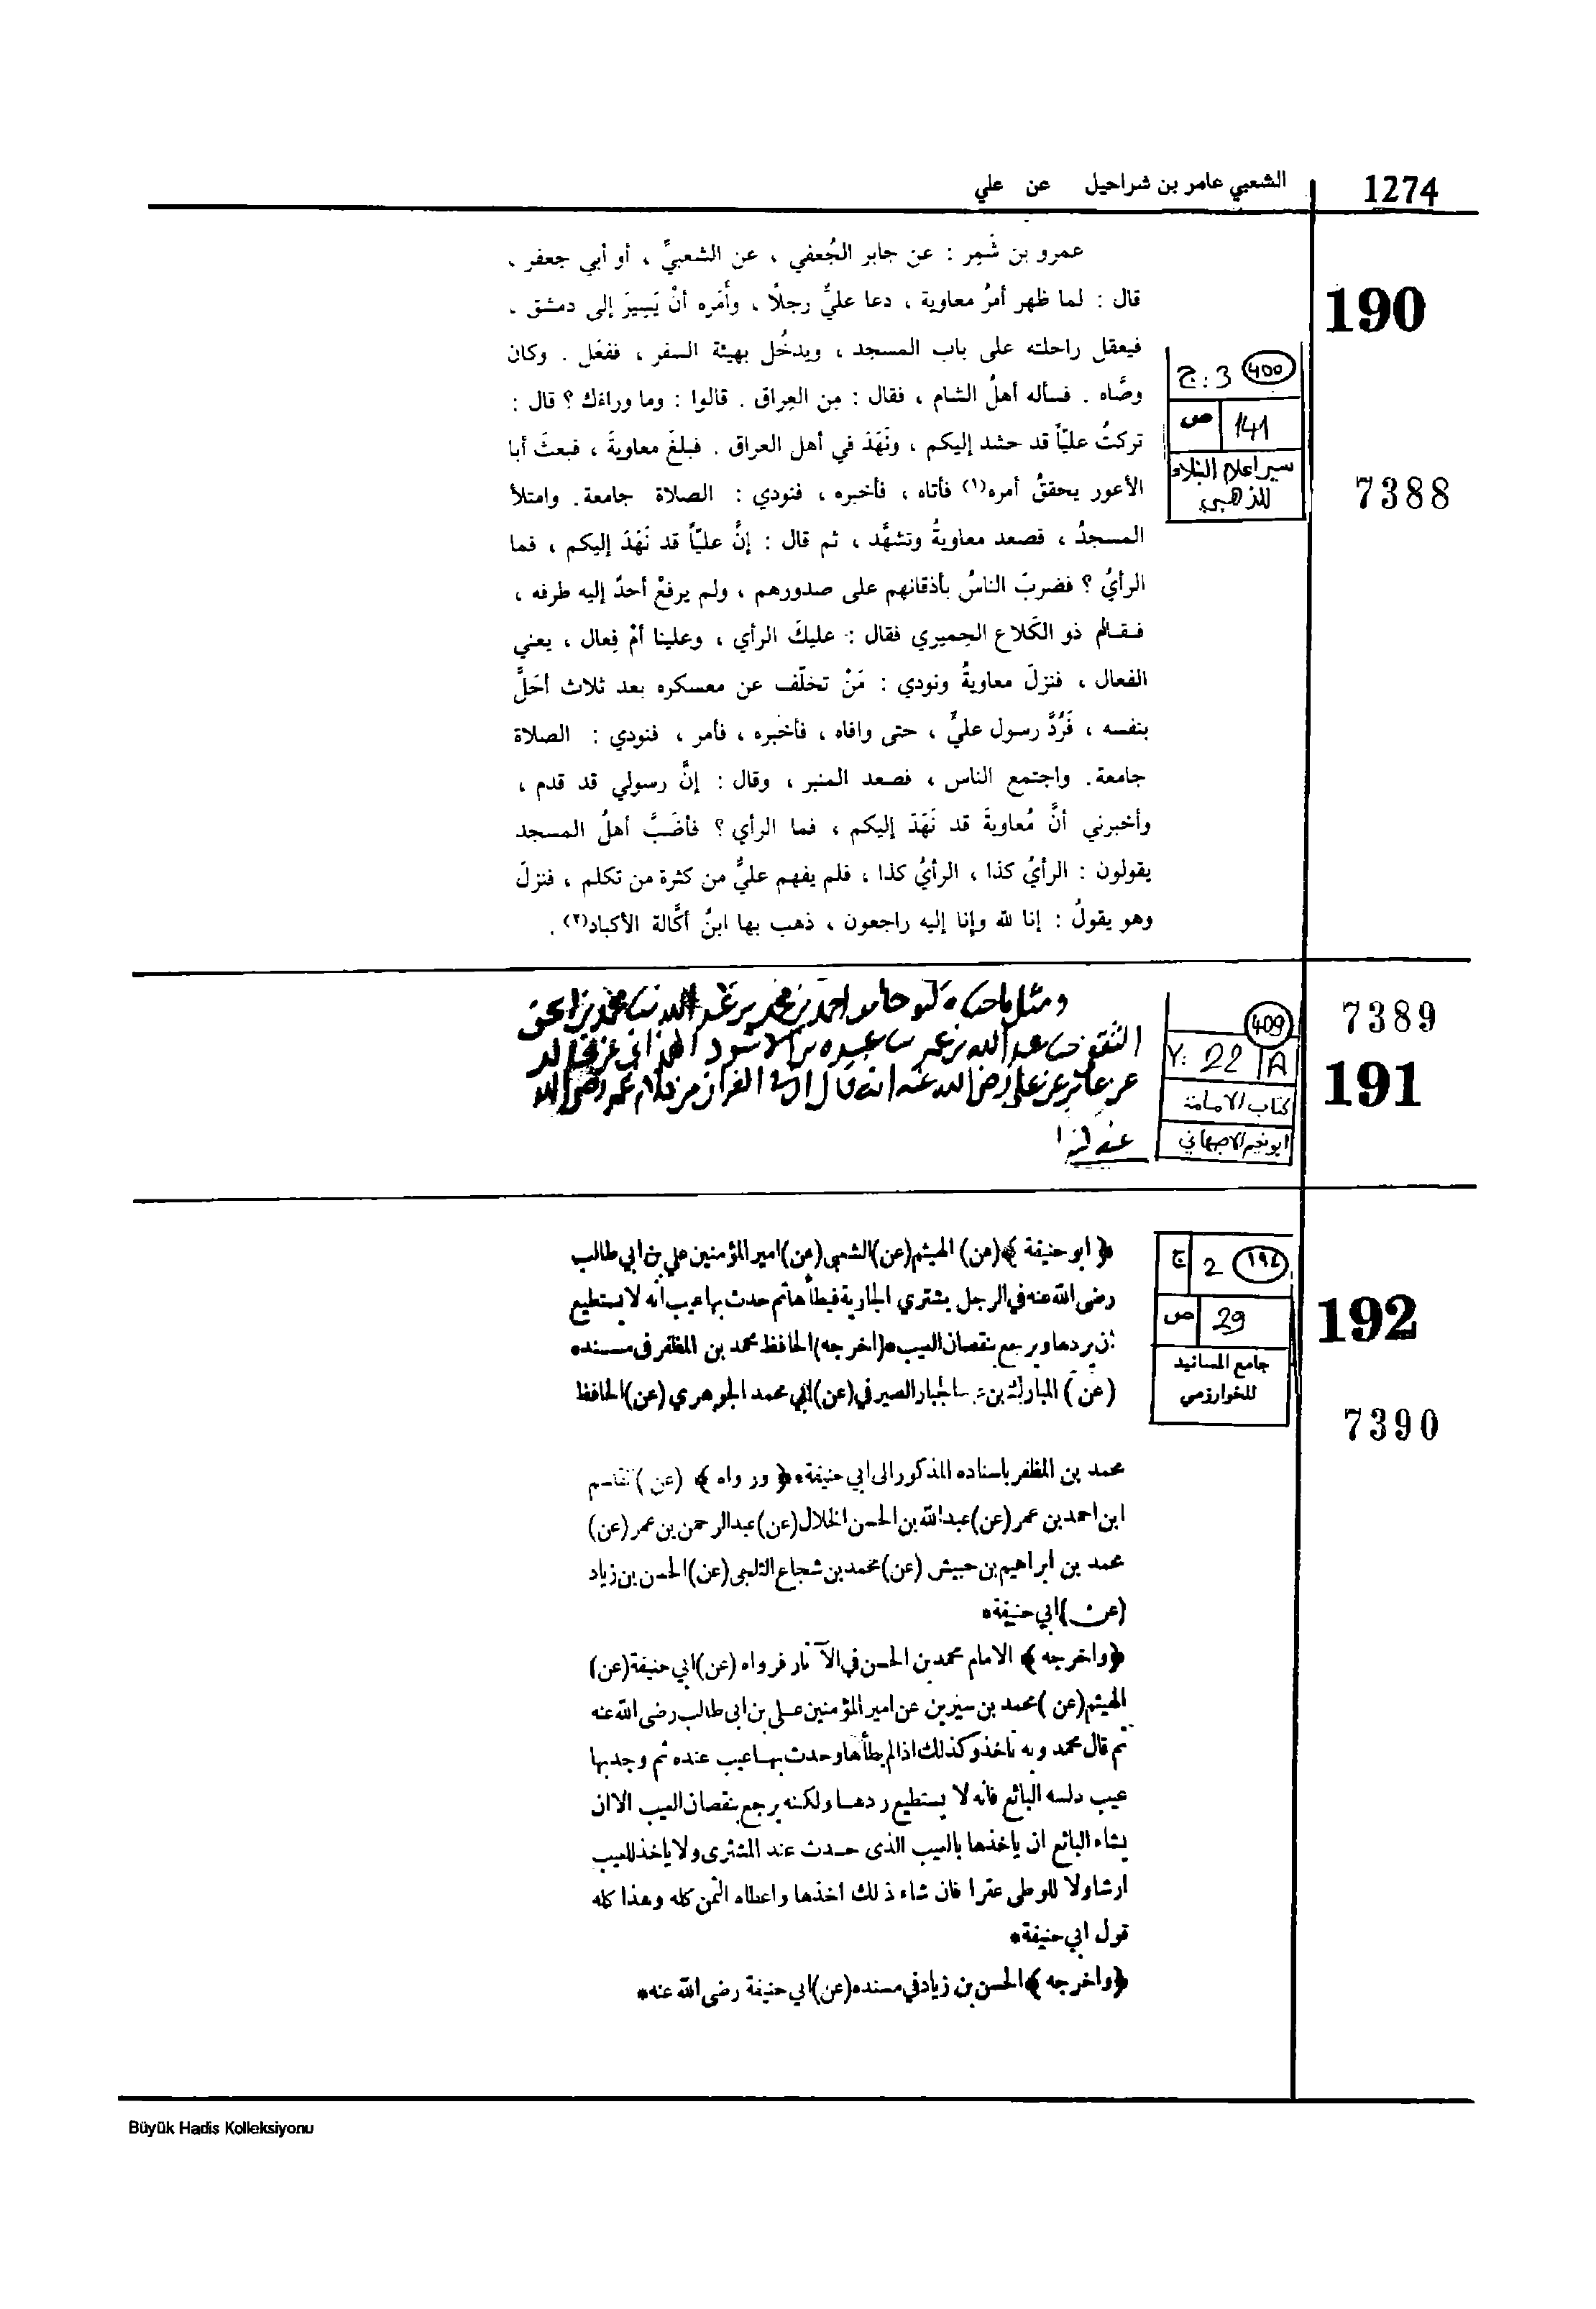 1274
الشعبي عامر بن شراحيل عن علي
عمرو بن شَمِر : عن جابر الجُعفي ، عن الشعبيِّ ، أو أبي جعفر ،
قال : لما ظهر أمرُ معاوية ، دعا عليٌّ رجلًا ، وأَمَره أنْ يَسِيرَ إلى دمشق ،
فيعقل راحلته على باب المسجد ، ويدخُل بهيئة السفر ، ففعَل . وكان
وصَّاه . فسأله أهلُ الشام ، فقال : مِن العِراق . قالوا : وما وراءَك ؟ قال :
تركتُ عليّاً قد حشد إليكم ، ونَهَدَ في أهل العراق . فبلغَ معاويةَ ، فبعثَ أبا
الأعور يحققُ أمره(١) فأتاه ، فأخبره ، فنودي : الصلاة جامعة . وامتلأ
المسجدُ ، فصعد معاويةُ وتشهَّد ، ثم قال : إنَّ عليّاً قد نَهَدَ إليكم ، فما
الرأيُ ؟ فضربَ الناسُ بأذقانهم على صدورهم ، ولم يرفعْ أحدٌ إليه طرفه ،
فـقـام ذو الكَلاع الحِميري فقال : عليكَ الرأي ، وعلينا أمْ فِعال ، يعني
الفعال ، فنزلَ معاويةُ ونودي : مَنْ تخلّف عن معسكره بعد ثلاث أحَلَّ
بنفسه ، فَرُدَّ رسول عليٍّ ، حتى وافاه ، فأخبره ، فأمر ، فنودي : الصلاة
جامعة . واجتمع الناس ، فصعد المنبر ، وقال : إنَّ رسولي قد قدم ،
وأخبرني أنَّ مُعاويةَ قد نَهَدَ إليكم ، فما الرأي ؟ فأضَبَّ أهلُ المسجد
يقولون : الرأيُ كذا ، الرأيُ كذا ، فلم يفهم عليٌّ من كثرة من تكلم ، فنزلَ
وهو يقولُ : إنا لله وإنا إليه راجعون ، ذهب بها ابنُ أكَّالة الأكباد(٢) .
190
ج : 3 400
ص 141
سير اعلام النبلاء
للذهبي
7388
حامد احمد بن محمد بن عبد الله محمد بن اسحق
الثقفي عبد الله بن عمر عبيده بن الاسود الهمذاني عن مجالد
عن عامر عن علي رضي الله عنه انه قال القران من كلام عمر رضي الله
عنه
409
Y: 22 A
كتاب الامامة
ابو نعيم الاصبهاني
7389
191
﴿ ابو حنيفة ﴾ (عن) الهيثم (عن) الشعبي (عن) امير المؤمنين علي بن ابي طالب
رضى الله عنه في الرجل يشتري الجارية فيطأها ثم حدث بها عيب انه لا يستطيع
ان يردها ويرجع بنقصان العيب * (اخرجه) الحافظ محمد بن المظفر فى مسنده
(عن) المبارك بن عبد الجبار الصيرفي (عن) ابي محمد الجوهري (عن) الحافظ
ج 2 ١٩٤
ص 29
جامع المسانيد
للخوارزمي
192
7390
محمد بن المظفر باسناده المذكور الى ابي حنيفة * ﴿ ورواه ﴾ (عن) القاسم
ابن احمد بن عمر (عن) عبد الله بن الحسن الخلال (عن) عبد الرحمن بن عمر (عن)
محمد بن ابراهيم بن حبيش (عن) محمد بن شجاع الثلجى (عن) الحسن بن زياد
(عن) ابي حنيفة *
﴿ واخرجه ﴾ الامام محمد بن الحسن في الآثار فرواه (عن) ابي حنيفة (عن)
الهيثم (عن) محمد بن سيرين عن امير المؤمنين علي بن ابى طالب رضى الله عنه
ثم قال محمد وبه ناخذ وكذلك اذا لم يطأها وحدث بها عيب عنده ثم وجد بها
عيب دلسه البائع فانه لا يستطيع ردها ولكنه يرجع بنقصان العيب الا ان
يشاء البائع ان ياخذها بالعيب الذى حدث عند المشترى ولا ياخذ للعيب
ارشا ولا للوطى عقرا فان شاء ذلك اخذها واعطاه الثمن كله وهذا كله
قول ابي حنيفة *
﴿ واخرجه ﴾ الحسن بن زياد في مسنده (عن) ابي حنيفة رضى الله عنه *
Büyük Hadis Kolleksiyonu